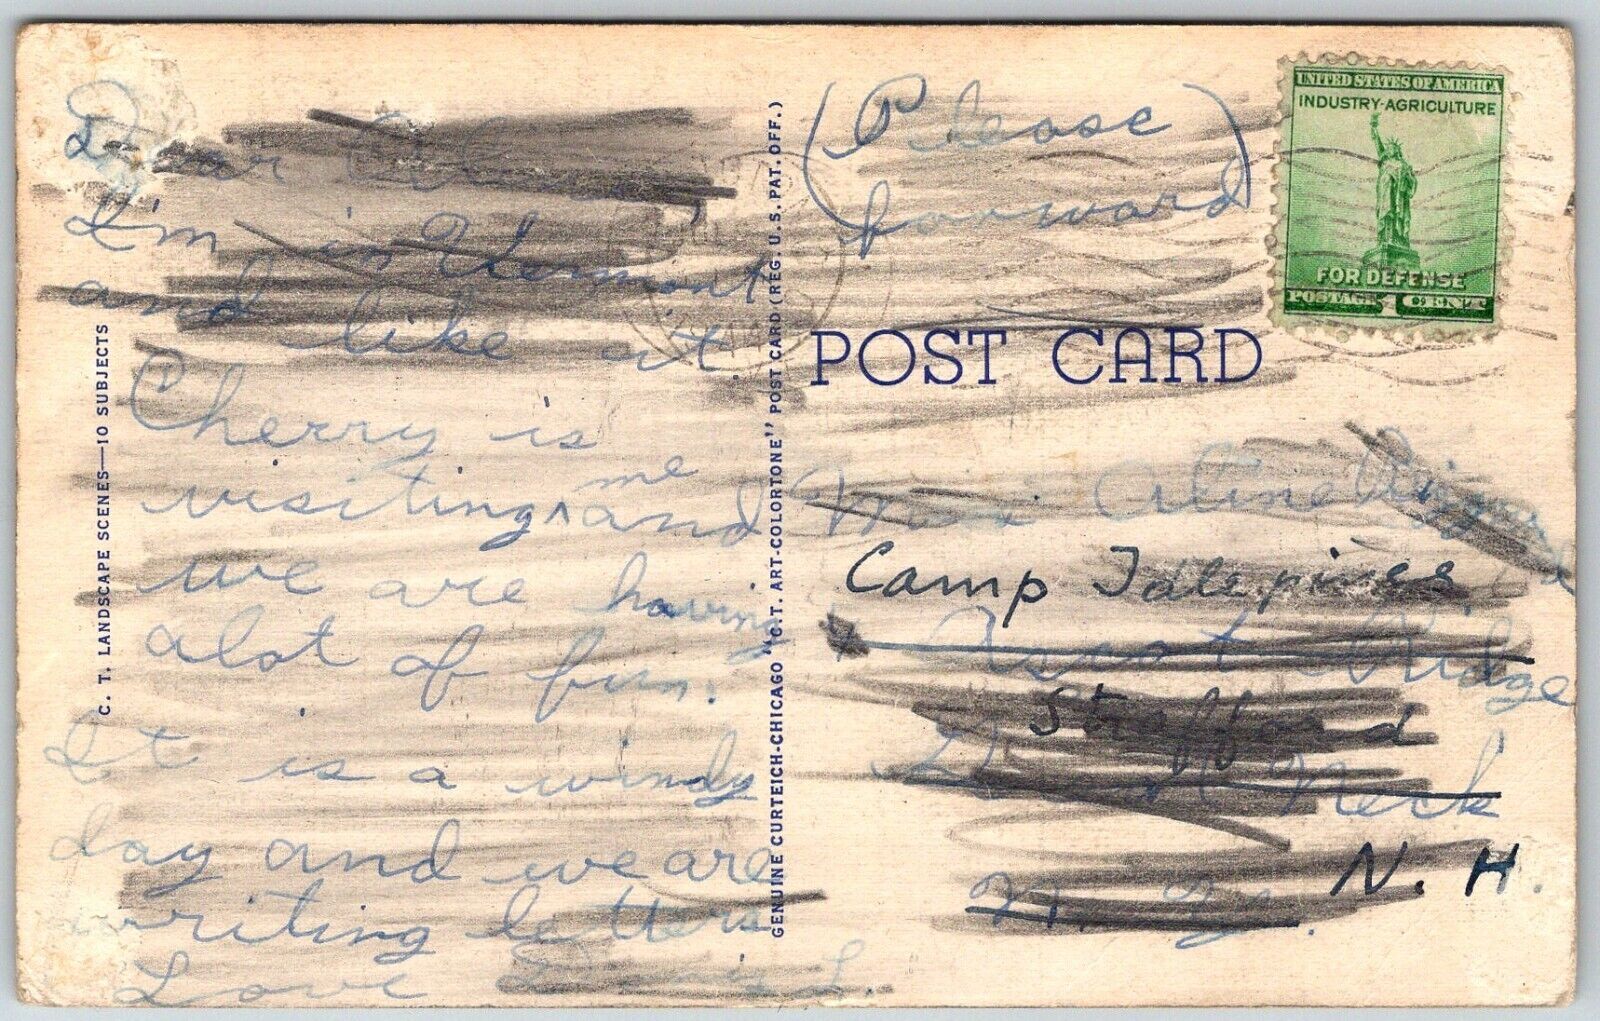 Dear
I'm in Vermont
and like it.
Cherry is
visiting me and
we are having
alot of fun.
It is a windy
day and we are
writing letters.
Love
C. T. LANDSCAPE SCENES—10 SUBJECTS
GENUINE CURTEICH-CHICAGO "C.T. ART-COLORTONE" POST CARD (REG. U.S. PAT. OFF.)
(Please
forward)
UNITED STATES OF AMERICA
INDUSTRY-AGRICULTURE
FOR DEFENSE
POSTAGE 1 CENT
POST CARD
Miss Aline
Camp Idlepines
Ascot Ridge
Strafford
Neck
N. Y.
N. H.